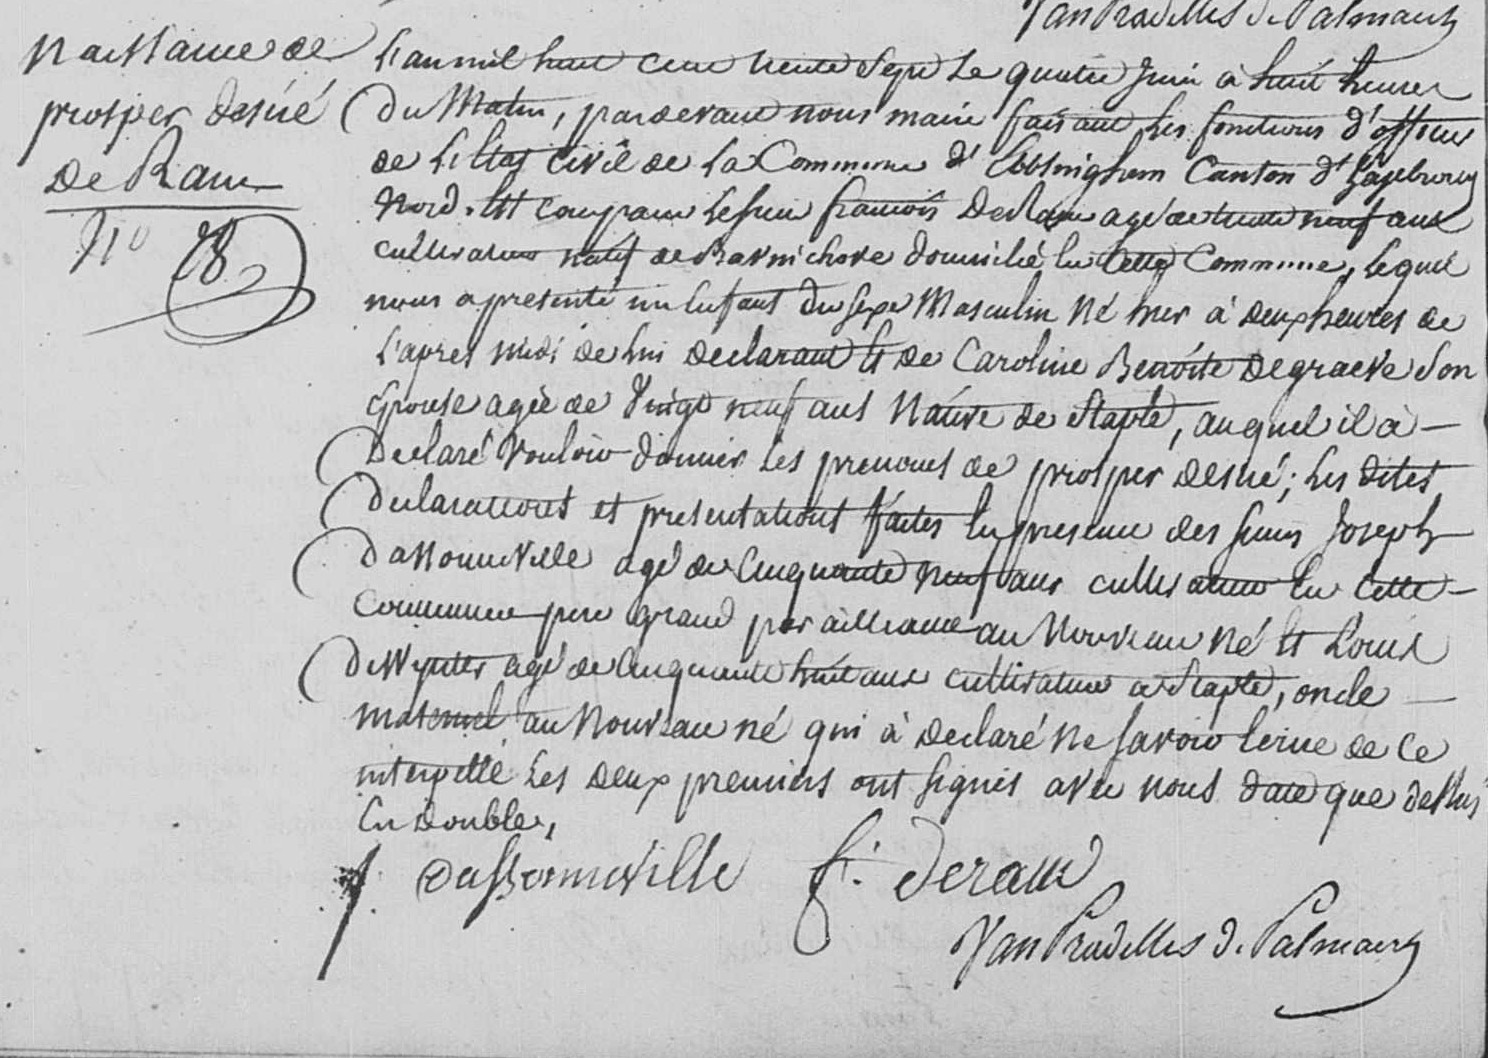 Van Pradelles de Palmaert
Naissance de
prosper desiré
De Ram
N° 28
L'an mil huit cent trente sept le quatre Juin à huit heures
Du Matin, pardevant nous maire faisant les fonctions d'officier
de l'Etat civil de la Commune d'Ebblinghem Canton d'hazebrouck
Nord. Est comparu le sieur françois DeRam agé de trente neuf ans
cultivateur natif de Bavinchove domicilié en cette Commune, lequel
nous a presenté un enfant du sexe Masculin Né hier à deux heures de
l'apres midi de lui declarant et de Caroline Benoite Degraeve son
Epouse agée de Vingt neuf ans Native de Staple, auquel il à
Declaré Vouloir donner les prenoms de prosper desiré; les dites
declarations et presentations faites en presence des sieurs Joseph
Dassonneville agé de Cinquante neuf ans cultivateur en Cette
Commune pere grand par ailliance au Nouveau Né et Louis
de Wynter agé de Cinquante huit ans cultivateur a Staple, oncle
maternel au Nouveau né qui à declaré Ne savoir Ecrire de ce
interpellé Les deux premiers ont signés avec nous date que dessus
En double,
Dassonneville f. deram
Van Pradelles de Palmaert